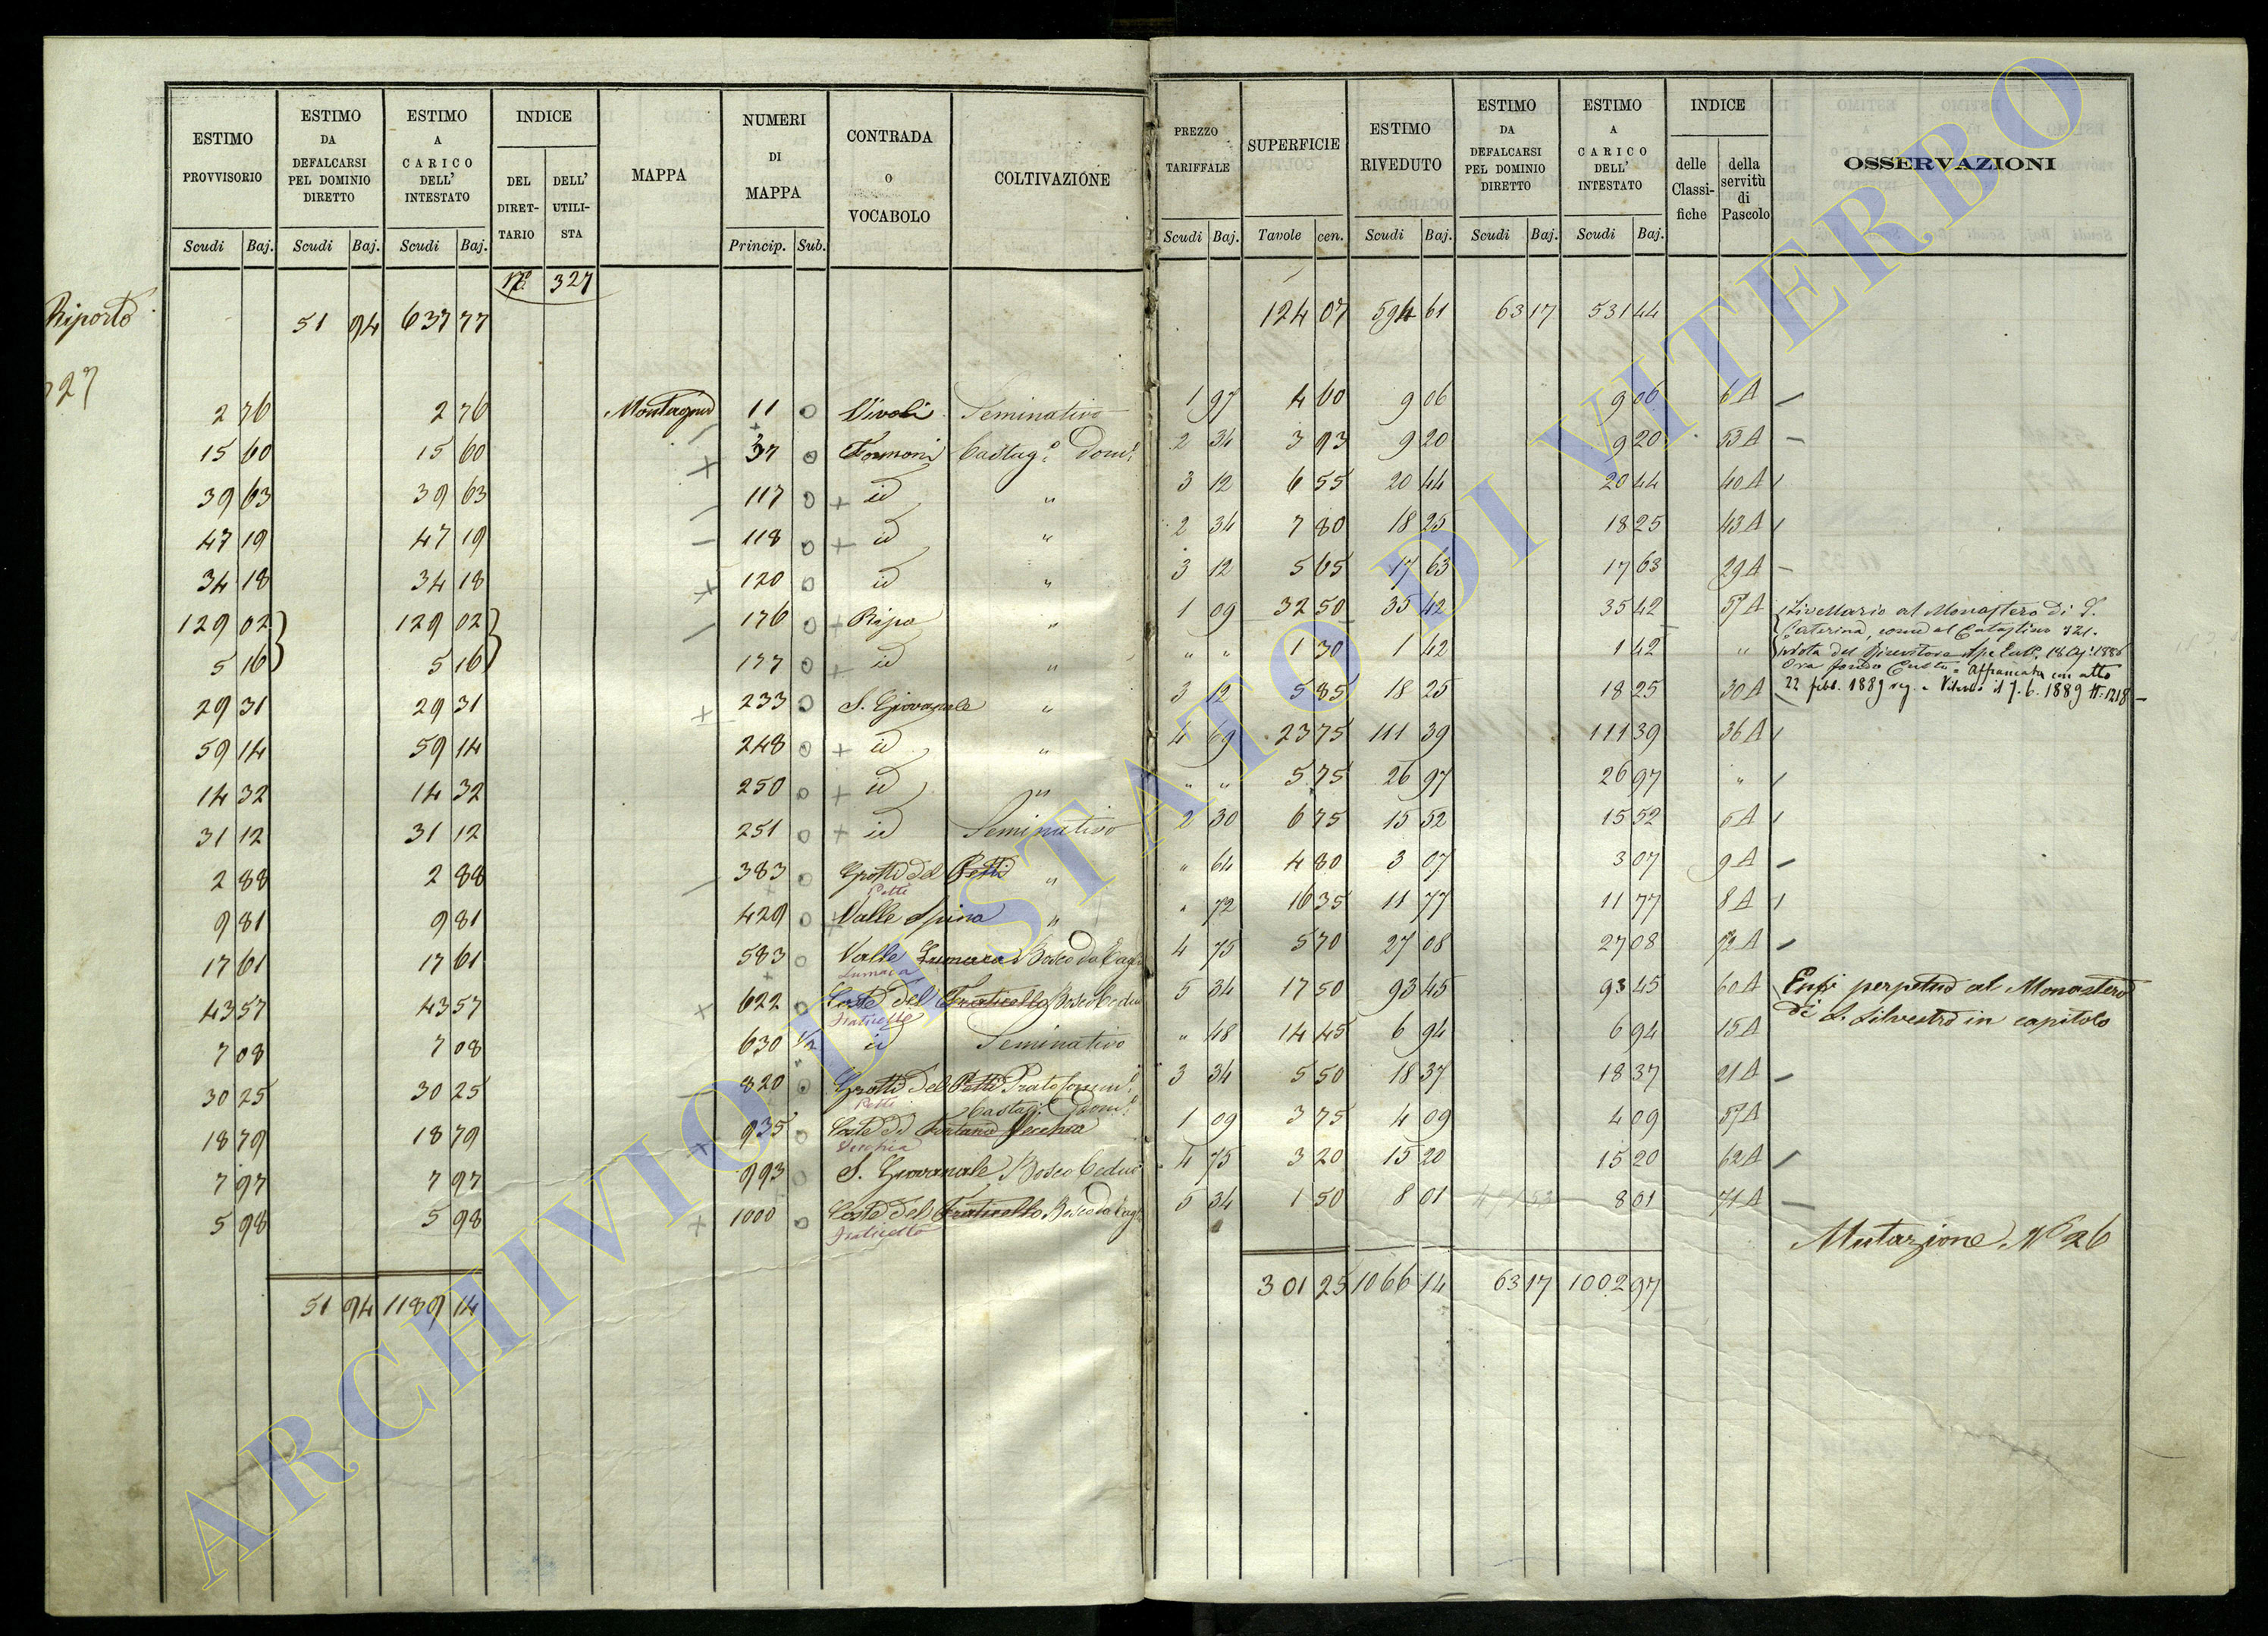 ESTIMO PROVVISORIO | ESTIMO DA DEFALCARSI PEL DOMINIO DIRETTO | ESTIMO A CARICO DELL' INTESTATO | INDICE DEL DIRETTARIO | DELL' UTILISTA | MAPPA | NUMERI DI MAPPA | CONTRADA O VOCABOLO | COLTIVAZIONE | PREZZO TARIFFALE | SUPERFICIE | ESTIMO RIVEDUTO | ESTIMO DA DEFALCARSI PEL DOMINIO DIRETTO | ESTIMO A CARICO DELL' INTESTATO | INDICE delle Classifiche | della servitù di Pascolo | OSSERVAZIONI
Scudi Baj. | Scudi Baj. | Scudi Baj. | Princip. Sub. | Scudi Baj. | Tavole cen. | Scudi Baj. | Scudi Baj. | Scudi Baj.
N° 327
Riporto 51 94 637 77 | 124 07 594 61 63 17 531 44
327
2 76 | 2 76 | Montagna | 11 | Vivoli | Seminativo | 1 97 | 4 60 | 9 06 | 9 06 | 6 A
15 60 | 15 60 | 37 | Formoni | Castag.° Dom.° | 2 34 | 3 93 | 9 20 | 9 20 | 53 A
39 63 | 39 63 | 117 | id | " | 3 12 | 6 55 | 20 44 | 20 44 | 40 A
47 19 | 47 19 | 118 | id | " | 2 34 | 7 80 | 18 25 | 18 25 | 43 A
34 18 | 34 18 | 120 | id | " | 3 12 | 5 65 | 17 63 | 17 63 | 29 A
129 02 | 129 02 | 176 | Ripa | " | 1 09 | 32 50 | 35 42 | 35 42 | 57 A | Livellario al Monastero di S.
Caterina, come al Catastino 321.
5 16 | 5 16 | 177 | id | " | " " | 1 30 | 1 42 | 1 42 | " | nota del Ricevitore 1886
Ora fondo Culto. Affrancata con atto
29 31 | 29 31 | 233 | S. Giovenale | " | 3 12 | 5 85 | 18 25 | 18 25 | 30 A | 22 febb. 1889 reg. a Viterbo il 7.6.1889 N. 1218
59 14 | 59 14 | 248 | id | " | 4 69 | 23 75 | 111 39 | 111 39 | 36 A
14 32 | 14 32 | 250 | id | " | " " | 5 75 | 26 97 | 26 97 | "
31 12 | 31 12 | 251 | id | Seminativo | 2 30 | 6 75 | 15 52 | 15 52 | 5 A
2 88 | 2 88 | 383 | Grotte del Petti | " | " 64 | 4 80 | 3 07 | 3 07 | 9 A
Petti
9 81 | 9 81 | 429 | Valle Spina | " | " 72 | 16 35 | 11 77 | 11 77 | 8 A
17 61 | 17 61 | 583 | Valle Lumaca | Bosco da | 4 75 | 5 70 | 27 08 | 27 08 | 72 A
Lumaca
43 57 | 43 57 | 622 | Coste del Fraticello | Bosco Ceduo | 5 34 | 17 50 | 93 45 | 93 45 | 60 A | Enf. perpetuo al Monastero
Fraticello | di S. Silvestro in capitolo
7 08 | 7 08 | 630 1/2 | id | Seminativo | " 48 | 14 45 | 6 94 | 6 94 | 15 A
30 25 | 30 25 | 820 | Grotte del Petti | Prato | 3 34 | 5 50 | 18 37 | 18 37 | 21 A
Petti | Castag.° Dom.°
18 79 | 18 79 | 935 | Coste di Fontana Vecchia | 1 09 | 3 75 | 4 09 | 4 09 | 57 A
Vecchia
7 97 | 7 97 | 993 | S. Giovenale | Bosco Ceduo | 4 75 | 3 20 | 15 20 | 15 20 | 62 A
5 98 | 5 98 | 1000 | Coste del Fraticello | Bosco da | 5 34 | 1 50 | 8 01 | 8 01 | 71 A
Fraticello
Mutazione N° 26
51 94 1189 14 | 301 25 1066 14 63 17 1002 97
ARCHIVIO DI STATO DI VITERBO